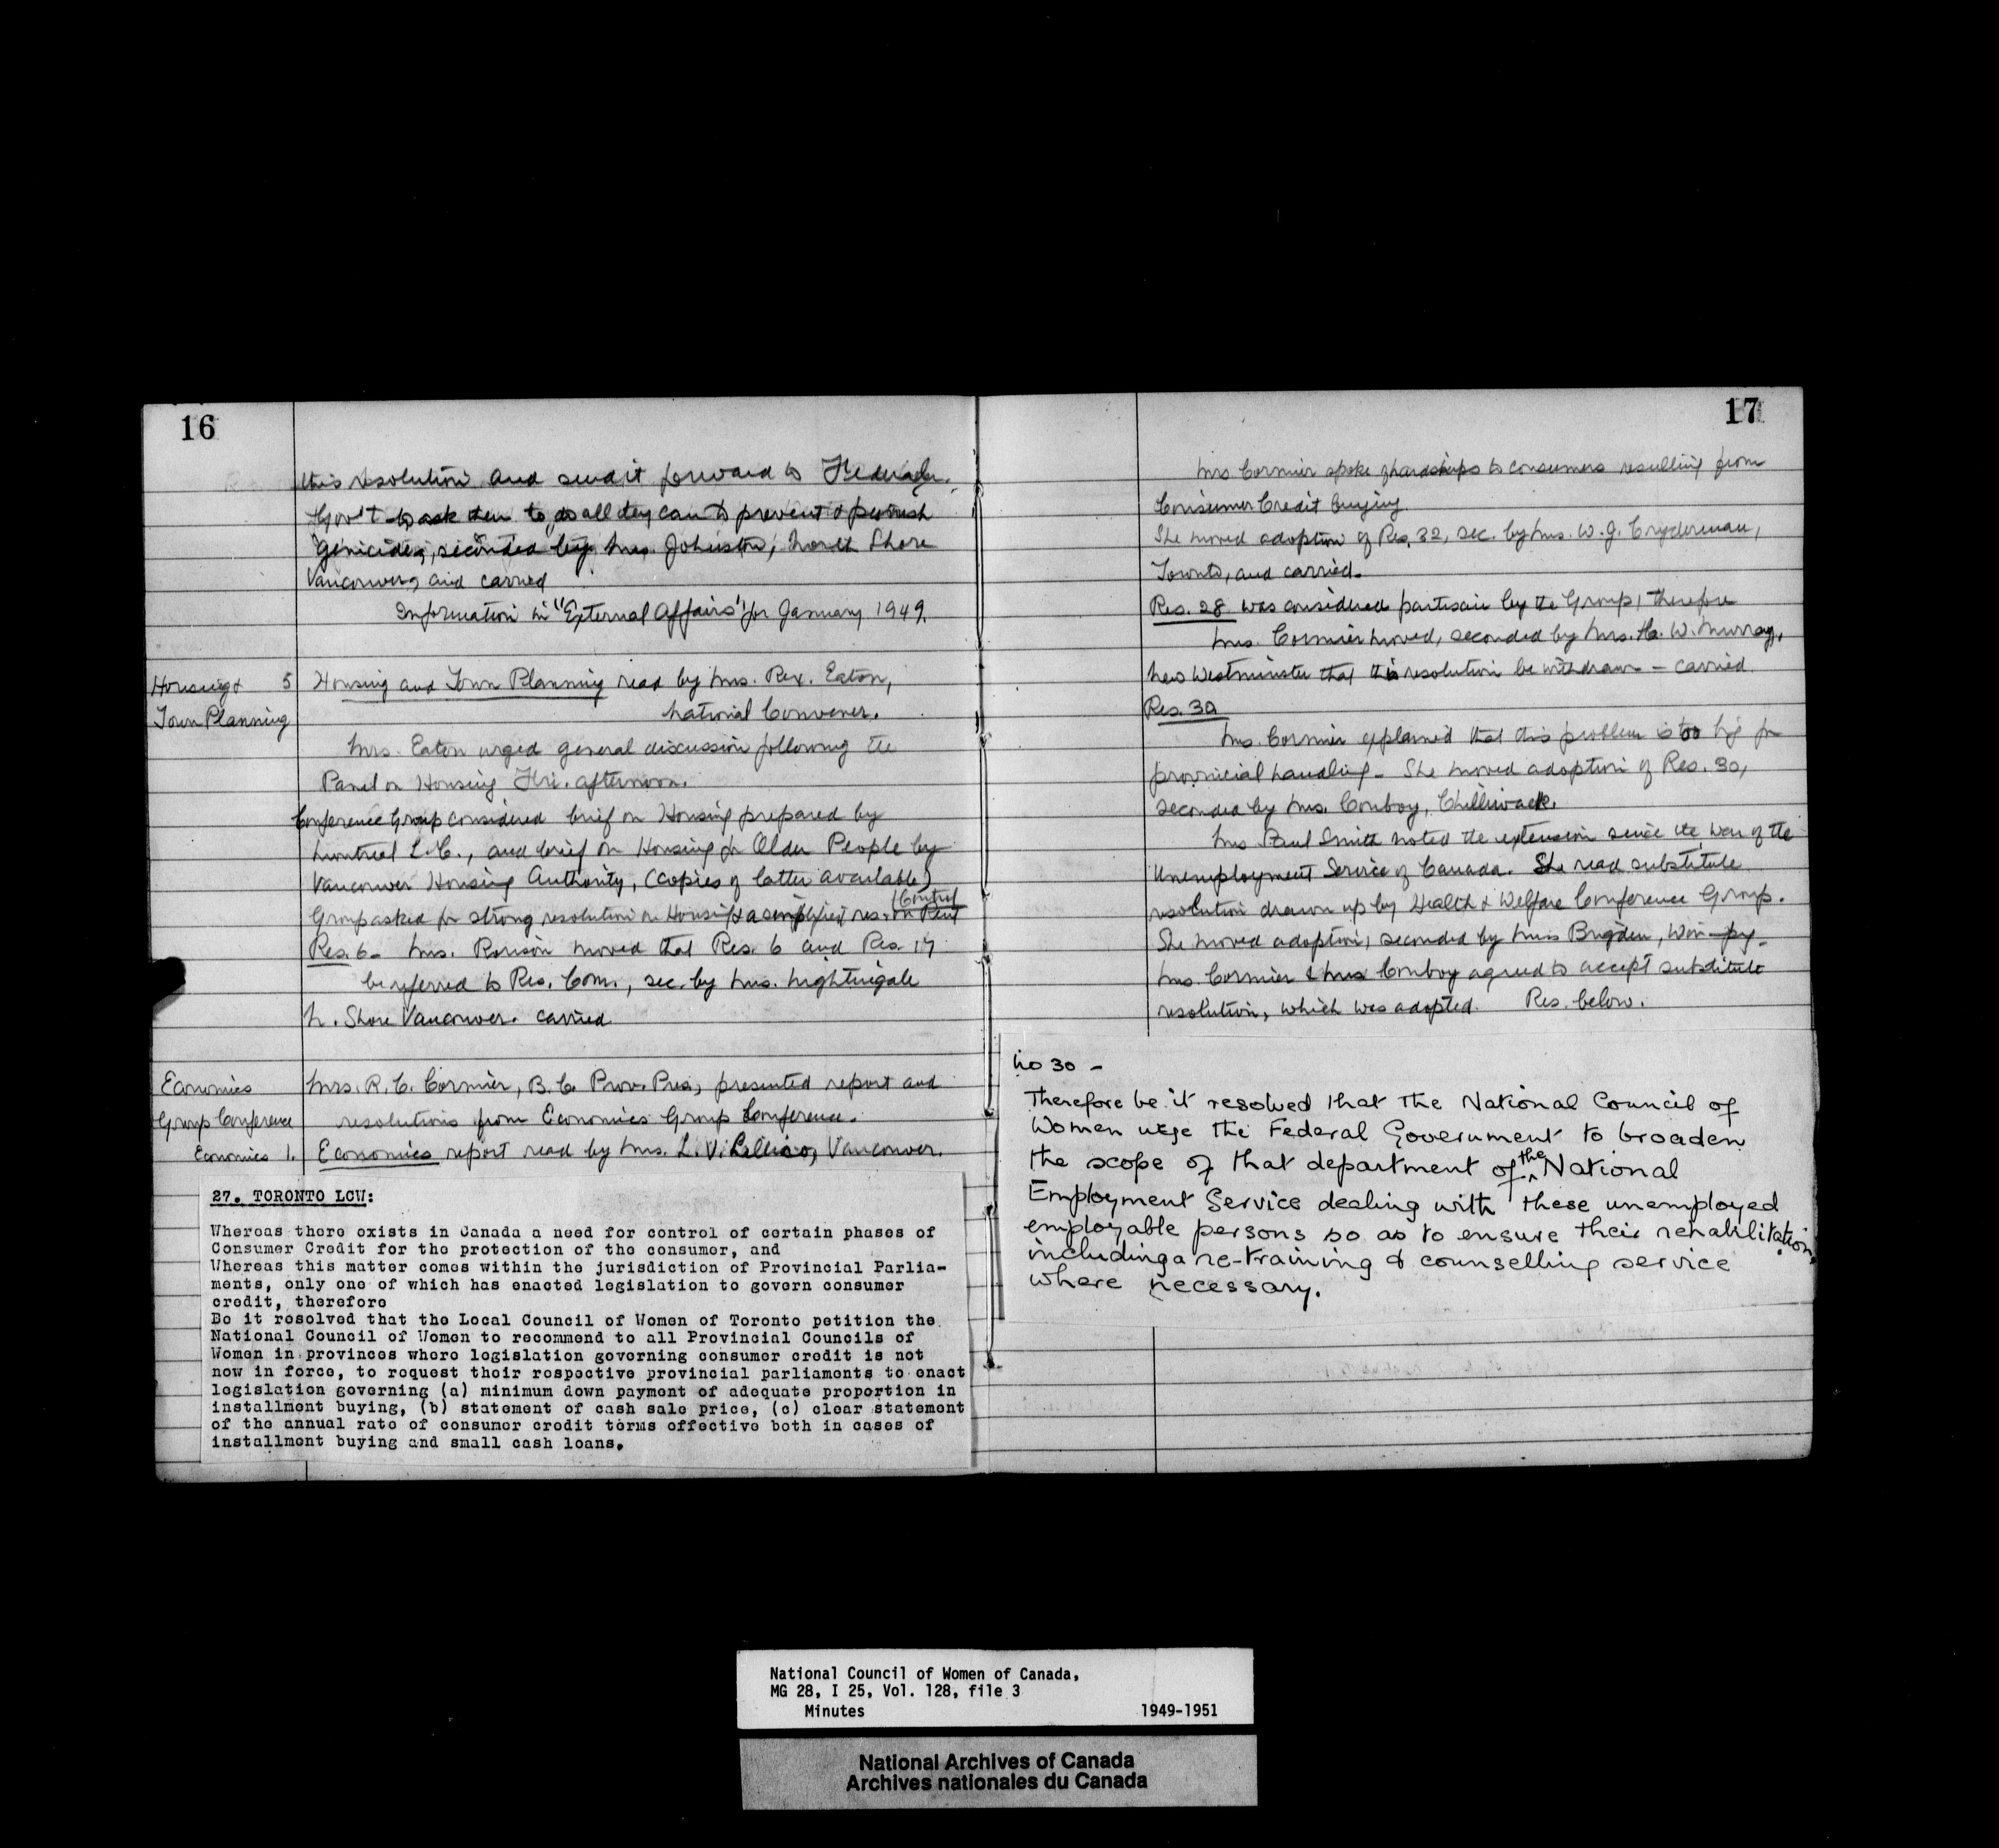 16
this resolution and send it forward to Federal
Gov't to ask them to do all they can to prevent & punish
Genicide, seconded by Mrs. Johnston, North Shore
Vancouver, and carried
Information in "External Affairs" for January 1949.
Housing & 5 Housing and Town Planning read by Mrs. Rex. Eaton,
Town Planning National Convener.
Mrs. Eaton urged general discussion following the
Panel on Housing Fri. afternoon.
Conference Group considered brief on Housing prepared by
Montreal L.C., and brief on Housing for Older People by
Vancouver Housing Authority, (copies of latter available)
Control
Group asked for strong resolution on Housing & a simplified res. on Rent
Res. 6 - Mrs. moved that Res. 6 and Res. 17
be referred to Res. Com., sec. by Mrs. Nightingale
N. Shore Vancouver. carried
Economics Mrs. R. C. Cormier, B.C. Prov. Pres, presented report and
Group Conference resolutions from Economics Group Conference.
Economics 1. Economics report read by Mrs. L. V. Vancouver.
27. TORONTO LCW:
Whereas there exists in Canada a need for control of certain phases of
Consumer Credit for the protection of the consumer, and
Whereas this matter comes within the jurisdiction of Provincial Parlia-
ments, only one of which has enacted legislation to govern consumer
credit, therefore
Be it resolved that the Local Council of Women of Toronto petition the
National Council of Women to recommend to all Provincial Councils of
Women in provinces where legislation governing consumer credit is not
now in force, to request their respective provincial parliaments to enact
legislation governing (a) minimum down payment of adequate proportion in
installment buying, (b) statement of cash sale price, (c) clear statement
of the annual rate of consumer credit terms effective both in cases of
installment buying and small cash loans.
17
Mrs Cormier spoke of hardships to consumers resulting from
Consumer Credit buying
She moved adoption of Res. 32, sec. by Mrs. W. G. Cryderman,
Toronto, and carried.
Res. 28 was considered partisan by the Group, therefore
Mrs. Cormier moved, seconded by Mrs. H. W. Murray,
New Westminster that this resolution be withdrawn - carried
Res. 30
Mrs. Cormier explained that this problem is too big for
provincial handling - She moved adoption of Res. 30,
seconded by Mrs. Conboy, Chilliwack.
Mrs Paul Smith noted the extension since the War of the
Unemployment Service of Canada. She read substitute
resolution drawn up by Health & Welfare Conference Group.
She moved adoption, seconded by Miss Brigden, Winnipeg.
Mrs Cormier & Mrs Conboy agreed to accept substitute
resolution, which was adopted. Res. below.
No 30 -
Therefore be it resolved that the National Council of
Women urge the Federal Government to broaden
the scope of that department of the National
Employment Service dealing with these unemployed
employable persons so as to ensure their rehabilitation,
including a re-training & counselling service
where necessary.
National Council of Women of Canada,
MG 28, I 25, Vol. 128, file 3
Minutes 1949-1951
National Archives of Canada
Archives nationales du Canada